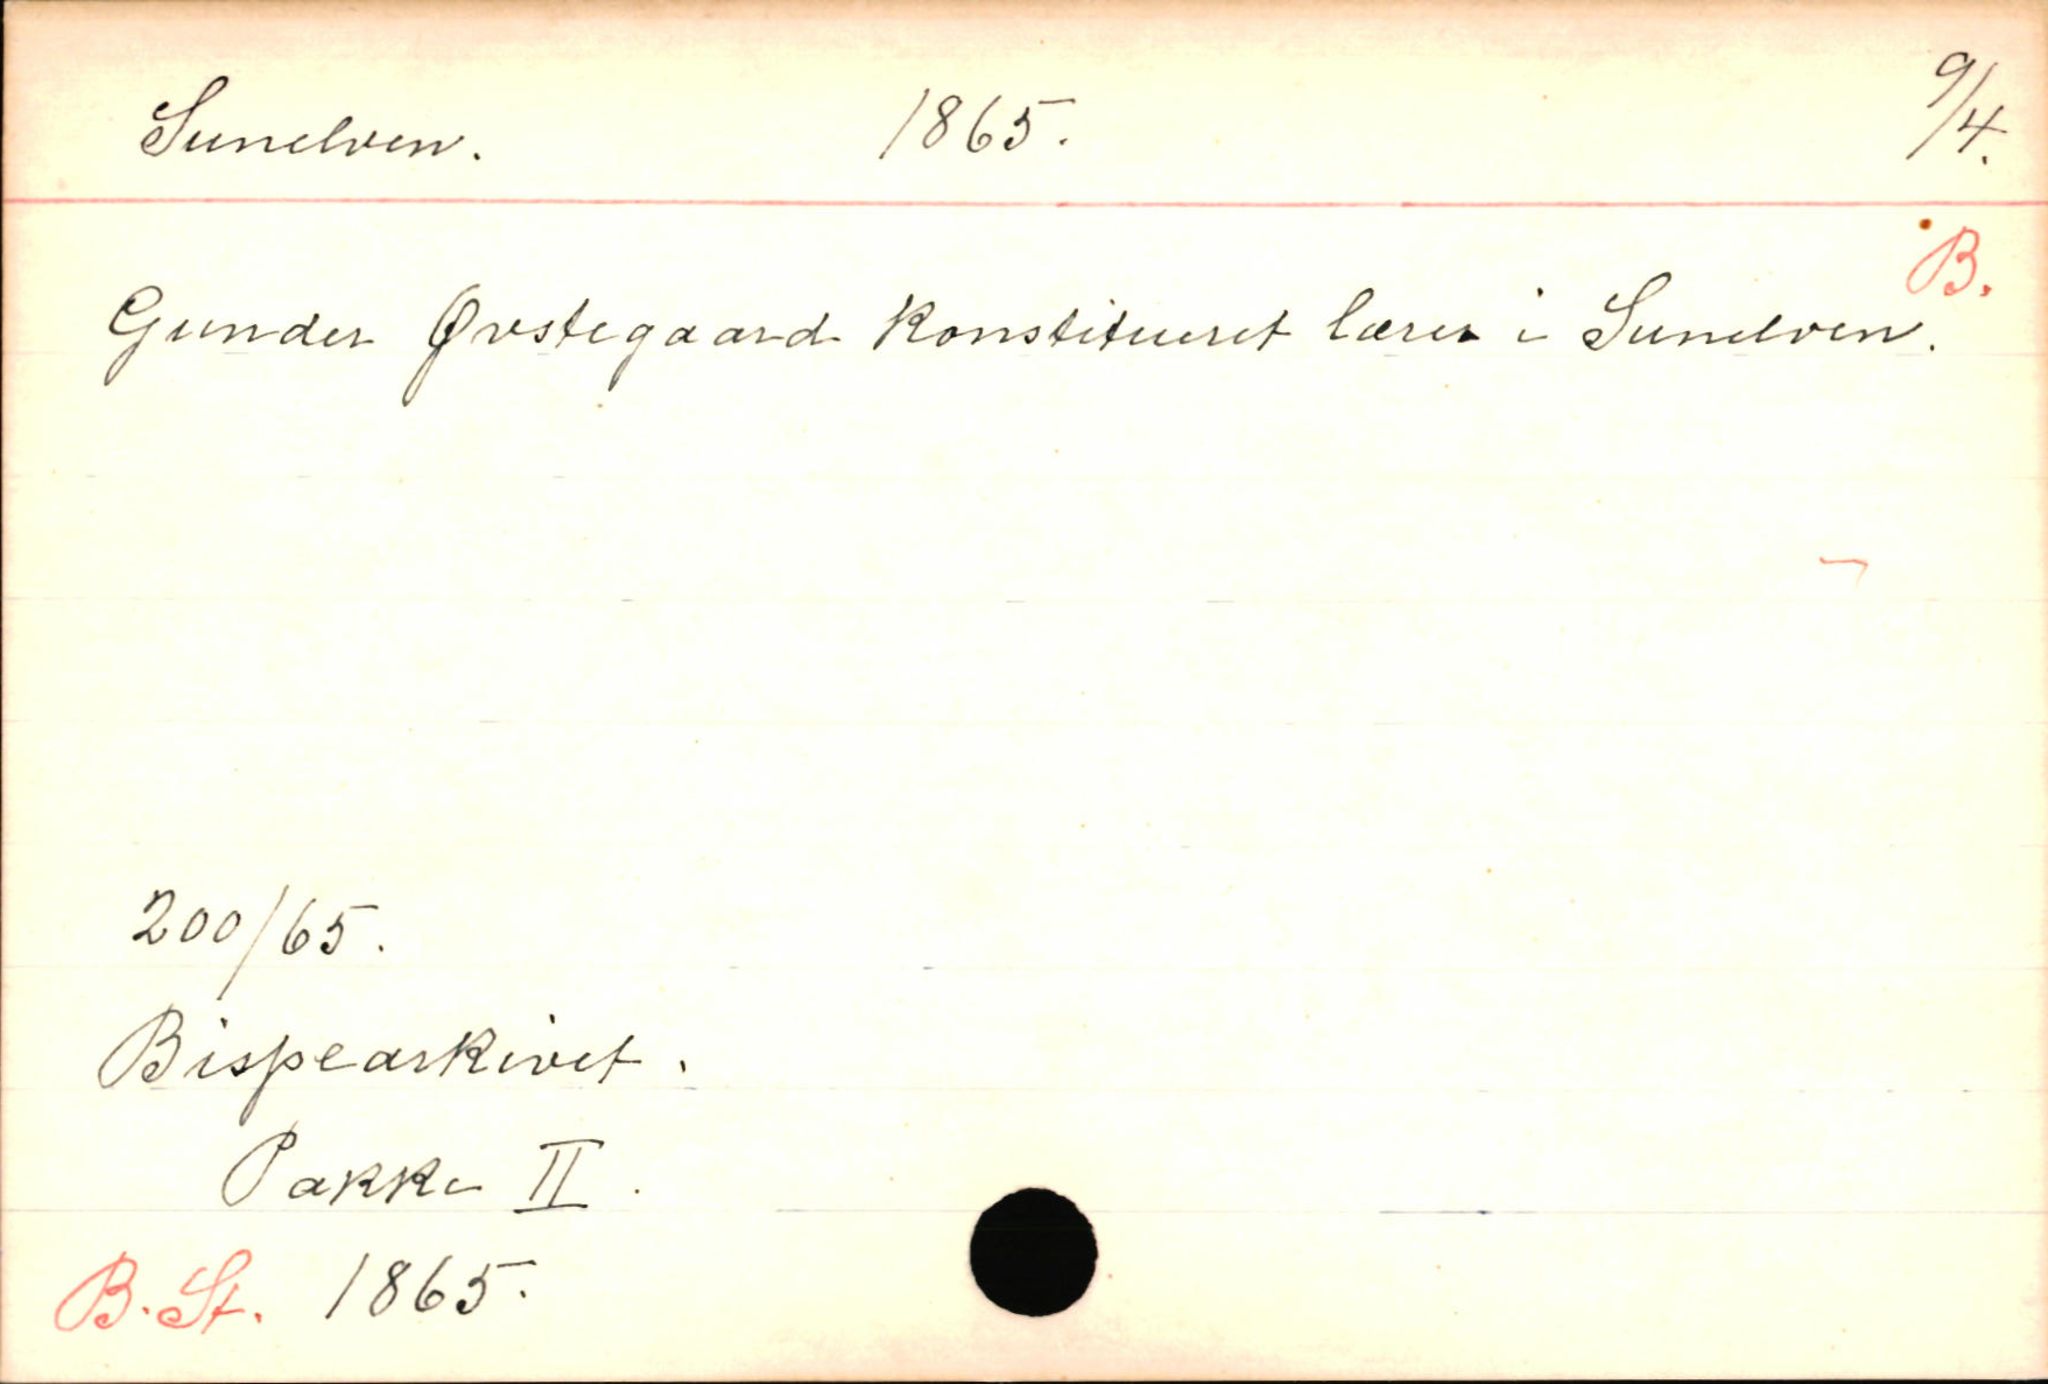 Sunelven. 1865. 9/4.
B.
Gunder Øvstegaard konstitueret lærer i Sunelven.
200/65.
Bispearkivet.
Pakke II.
B. St. 1865.